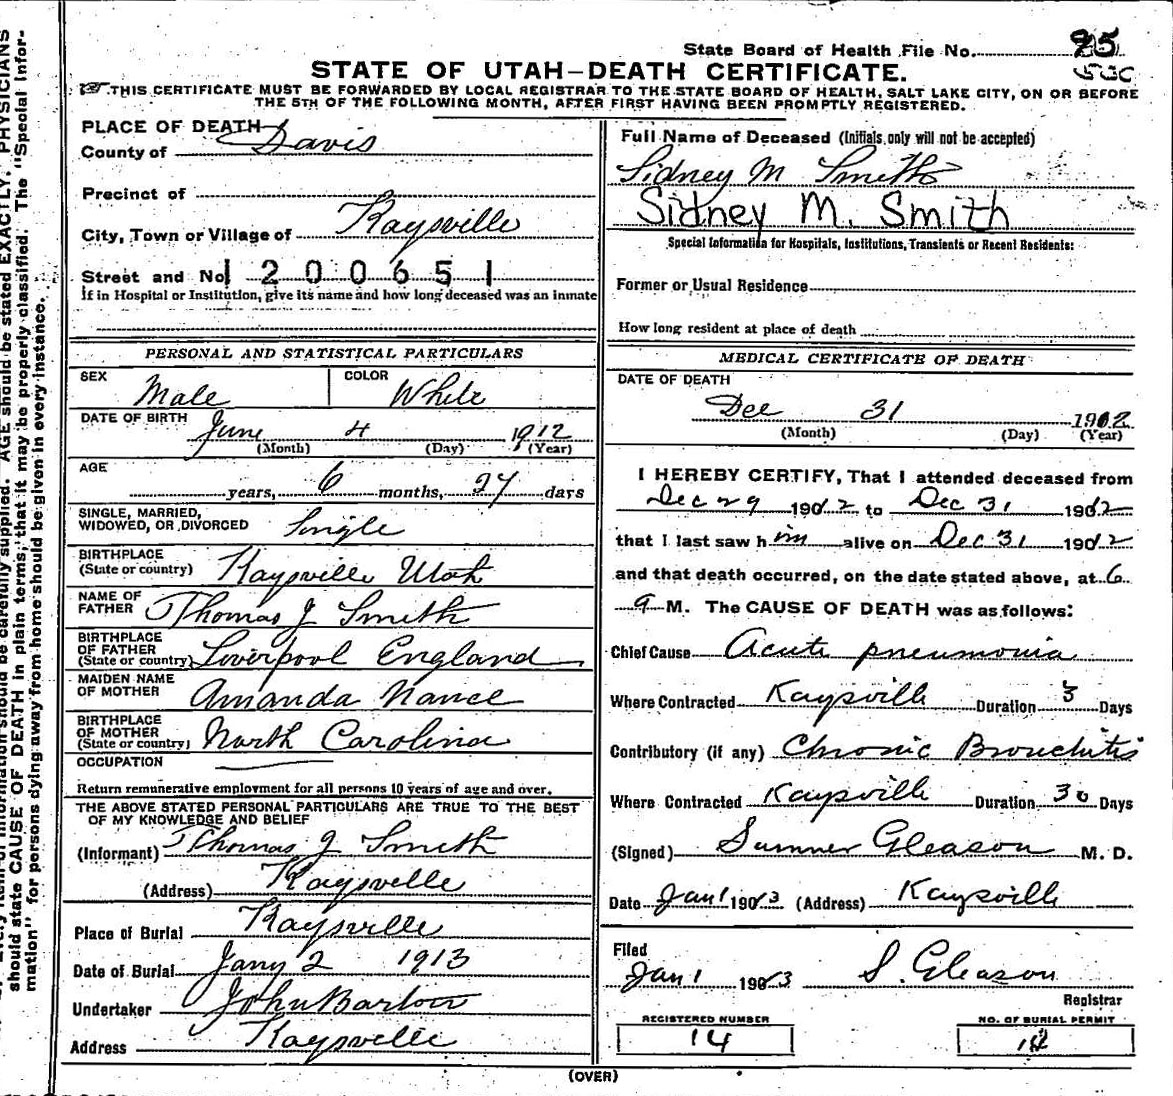 State Board of Health File No. 95
STATE OF UTAH—DEATH CERTIFICATE.
THIS CERTIFICATE MUST BE FORWARDED BY LOCAL REGISTRAR TO THE STATE BOARD OF HEALTH, SALT LAKE CITY, ON OR BEFORE
THE 5TH OF THE FOLLOWING MONTH, AFTER FIRST HAVING BEEN PROMPTLY REGISTERED.
PLACE OF DEATH
County of Davis
Precinct of
City, Town or Village of Kaysville
Street and No. 1200651
If in Hospital or Institution, give its name and how long deceased was an inmate
PERSONAL AND STATISTICAL PARTICULARS
SEX Male COLOR White
DATE OF BIRTH June 4 1912
(Month) (Day) (Year)
AGE
years, 6 months, 27 days
SINGLE, MARRIED,
WIDOWED, OR DIVORCED Single
BIRTHPLACE
(State or country) Kaysville Utah
NAME OF
FATHER Thomas J Smith
BIRTHPLACE
OF FATHER
(State or country) Liverpool England
MAIDEN NAME
OF MOTHER Amanda Nance
BIRTHPLACE
OF MOTHER
(State or country) North Carolina
OCCUPATION
Return remunerative employment for all persons 10 years of age and over.
THE ABOVE STATED PERSONAL PARTICULARS ARE TRUE TO THE BEST
OF MY KNOWLEDGE AND BELIEF
(Informant) Thomas J Smith
(Address) Kaysville
Place of Burial Kaysville
Date of Burial Jany 2 1913
Undertaker John Barton
Address Kaysville
Full Name of Deceased (Initials only will not be accepted)
Sidney M Smith
Sidney M. Smith
Special Information for Hospitals, Institutions, Transients or Recent Residents:
Former or Usual Residence
How long resident at place of death
MEDICAL CERTIFICATE OF DEATH
DATE OF DEATH
Dec 31 1912
(Month) (Day) (Year)
I HEREBY CERTIFY, That I attended deceased from
Dec 29 1912 to Dec 31 1912
that I last saw him alive on Dec 31 1912
and that death occurred, on the date stated above, at 6
a M. The CAUSE OF DEATH was as follows:
Chief Cause Acute pneumonia
Where Contracted Kaysville Duration 3 Days
Contributory (if any) Chronic Bronchitis
Where Contracted Kaysville Duration 30 Days
(Signed) Sumner Gleason M. D.
Date Jan 1 1913 (Address) Kaysville
Filed
Jan 1 1913 S. Gleason
Registrar
REGISTERED NUMBER NO. OF BURIAL PERMIT
14 14
(OVER)
should be carefully supplied. AGE should be stated EXACTLY. PHYSICIANS
should state CAUSE OF DEATH in plain terms, that it may be properly classified. The "Special Infor-
mation" for persons dying away from home should be given in every instance.